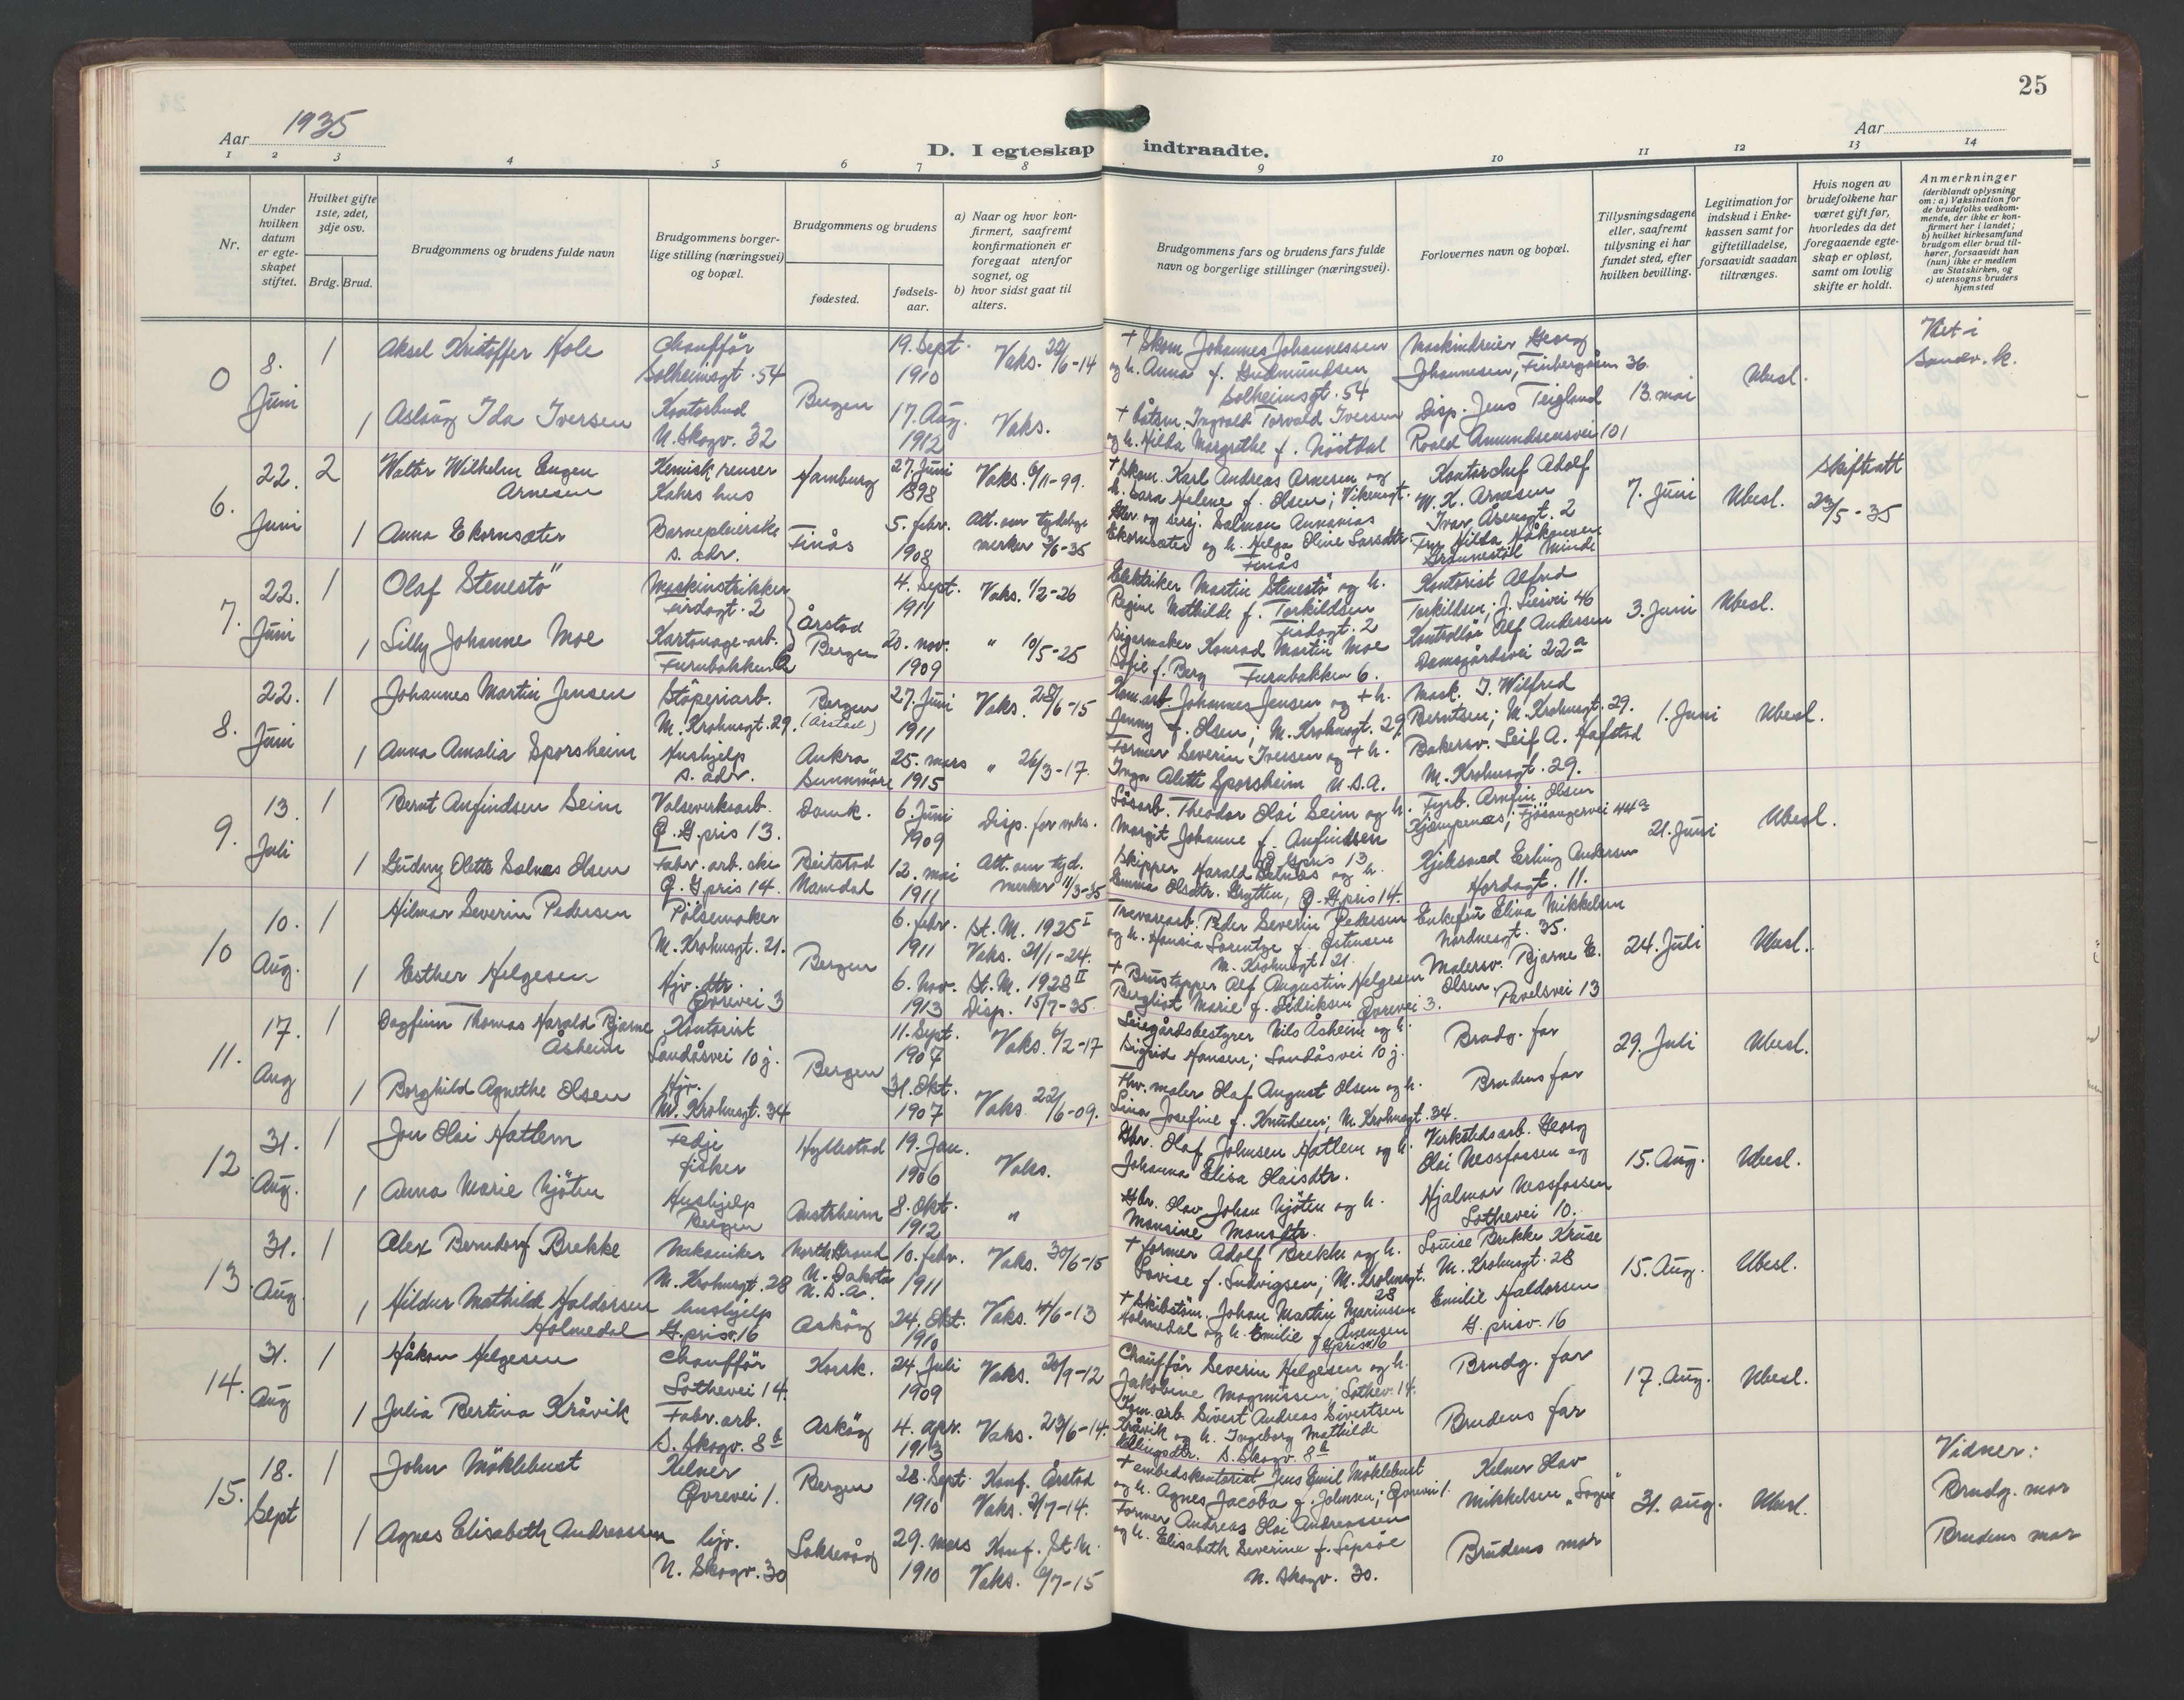 25
Aar 1935
Aar
D. I egteskap indtraadte.
1 2 3 4 5 6 7 8 9 10 11 12 13 14
Nr.
Under hvilken datum er egteskapet stiftet.
Hvilket gifte 1ste, 2det, 3dje osv.
Brdg. Brud.
Brudgommens og brudens fulde navn
Brudgommens borgerlige stilling (næringsvei) og bopæl.
Brudgommens og brudens
fødested.
fødselsaar.
a) Naar og hvor konfirmert, saafremt konfirmationen er foregaat utenfor sognet, og
b) hvor sidst gaat til alters.
Brudgommens fars og brudens fars fulde navn og borgerlige stillinger (næringsvei).
Forlovernes navn og bopæl.
Tillysningsdagene eller, saafremt tillysning ei har fundet sted, efter hvilken bevilling.
Legitimation for indskud i Enkekassen samt for giftetilladelse, forsaavidt saadan tiltrænges.
Hvis nogen av brudefolkene har været gift før, hvorledes da det foregaaende egteskap er opløst, samt om lovlig skifte er holdt.
Anmerkninger
(deriblandt oplysning om: a) Vaksination for de brudefolks vedkommende, der ikke er konfirmert her i landet; b) hvilket kirkesamfund brudgom eller brud tilhører, forsaavidt han (hun) ikke er medlem av Statskirken, og c) utensogns bruders hjemsted
0
8. Juni
1
Aksel Kristoffer Hole
Chauffør
Solheimsgt. 54
Bergen
19. Sept. 1910
Vaks. 6-14
+ Skom. Johannes Johannessen
og h. Anna f. Gudmundsen
Solheimsgt. 54
Maskindreier Georg
Johannesen, 36
13. mai
Ubesl.
Viet i
Sandv. k.
1
Aslaug Ida Iversen
Kontorbud
N. Skogv. 32
17. Aug. 1912
Vaks.
+ båtsm. Ingvald Torvald Iversen
og h. Hilda Margrethe f. Nöstdal
Disp. Jens Teigland
Roald Amundsensvei 101
6.
22. Juni
2
Walter Wilhelm Eugen
Arnesen
Kemisk renser
Kahrs hus
Hamburg
27. Juni 1898
Vaks. 6/11-99.
+ Skom. Karl Andreas Arnesen og
h. Sara Helene f. Olsen;
Kontorchef Adolf
W. K. Arnesen
Ivar Åsensgt. 2
7. Juni
Ubesl.
Skifteatt
23/5-35
1
Anna Ekornsæter
Barnepleierske
s. adr.
Finås
5. febr. 1908
Att. om tydelige
merker 3/6-35
Salmon Annanias
Ekornsæter og h. Helga Oline Larsdtr
Finås
Fru Hilda Håkonsen
Minde
7.
22. Juni
1
Olaf Stenestö
Maskinstrikker
Fjrdagt. 2
Årstad
4. Sept. 1911
Vaks. 1/2-26
Elektriker Martin Stenestö og h.
Regine Mathilde f. Torkildsen
Kontorist Alfred
Torkildsen; J. Liesvei 46
3. Juni
Ubesl.
1
Lilly Johanne Moe
Kartonage-arb.
Furubakken 6
Bergen
20. nov. 1909
" 10/5-25
Sigarmaker Konrad Martin Moe
Sofie f. Berg Furubakken 6.
Kontrollör Alf Andersen
Damsgårdsvei 22a
8.
22. Juni
1
Johannes Martin Jensen
Stöperiarb.
M. Krohnsgt. 29.
Bergen
(Årstad)
27. Juni 1911
Vaks. 28/6-15
Kom. arb. Johannes Jensen og + h.
Jenny f. Olsen; M. Krohnsgt. 29.
Mask. J. Wilfred
Berntsen; M. Krohnsgt. 29.
1. Juni
Ubesl.
1
Anna Amalia Sporsheim
Hushjelp
s. adr.
Aukra
Sunnmöre
25. mars 1915
" 26/3-17.
Farmer Severin Iversen og + h.
Inga Alette Sporsheim U.S.A.
Bakersv. Leif A. Hafstad
M. Krohnsgt. 29.
9.
13. Juli
1
Bernt Anfindsen Seim
Valseverksarb.
G. pris 13.
Damk.
6. Juni 1909
Disp. for vaks.
Lösarb. Theodor Olai Seim og h.
Margit Johanne f. Anfindsen
Fyrb. Arnfin Olsen
Kjempenæs; Fjösangervei 44a
21. Juni
Ubesl.
1
Gudny Olette Solnæs Olsen
Fabr. arb.
G. pris 14.
Beitstad
Namdal
12. mai 1911
Att. om tyd.
merker 11/3-35
Skipper Harald Solnæs og h.
Emma Olsdtr. Grytten, G. pris 14.
Kjelsmed Erling Andersen
Hordagt. 11.
10
10. Aug.
1
Hilmar Severin Pedersen
Pölsemaker
M. Krohnsgt. 21.
Bergen
6. febr. 1911
St. M. 1925 I
Vaks. 21/1-24.
Travarearb. Peder Severin Pedersen
og h. Hansia Lorentze f. Östensen
M. Krohnsgt. 21.
Enkefru Elina Mikkelsen
Nordnesgt. 35.
24. Juli
Ubesl.
1
Esther Helgesen
Hjv. dtr.
Øvrevei 3
6. Nov. 1913
St. M. 1928 II
Disp. 15/7-35.
+ Brustapper Alf Augustin Helgesen
Bergliot Marie f. Fedriksen Øvrevei 3.
Malersv. Bjarne E.
Olsen. Pavelsvei 13
11.
17. Aug
1
Dagfinn Thomas Harald Bjarne
Åsheim
Kontorist
Landåsvei 10 j.
Bergen
11. Sept. 1907
Vaks. 6/2-17
Leiegårdsbestyrer Nils Åsheim og h.
Sigrid Hansen; Landåsvei 10 j.
Brudg. far
29. Juli
Ubesl.
1
Borghild Agnethe Olsen
Hjv.
M. Krohnsgt. 34
31. Okt. 1907
Vaks. 22/6-09.
Hv. maler Olaf August Olsen og h.
Lina Josefine f. Knudsen; M. Krohnsgt. 34.
Brudens far
12
31. Aug.
1
Jon Olai Hatlem
Fedje
fisker
Hyllestad
19. Jan. 1906
Vaks.
Gbr. Olaf Johnsen Hatlem og h.
Johanna Elisa Olaisdtr.
Verkstedsarb. Georg
Olai Nessfossen og
15. Aug.
Ubesl.
1
Anna Marie Njöten
Hushjelp
Bergen
Austrheim
8. Okt. 1912
"
Gbr. Olav Johan Njöten og h.
Monsine Monsdtr.
Hjalmar Nessfossen
Lothevei 10.
13.
31. Aug
1
Alex Berndorf Brekke
Mekaniker
M. Krohnsgt. 28
North Grand
N. Dakota
U.S.A.
10. febr. 1911
Vaks. 30/6-15
+ farmer Adolf Brekke og h.
Lovise f. Ludvigsen; M. Krohnsgt. 28
Louise Brekke Kruse
M. Krohnsgt. 28
15. Aug.
Ubesl.
1
Hildur Mathilde Haldorsen
Holmedal
hushjelp
G. prisv. 16
Asköy
24. Okt. 1910
Vaks. 4/6-13
+ Skibstöm. Johan Martin Marinussen
Holmedal og h. Emilie f. Arnesen
G. prisv. 16
Emilie Haldorsen
G. prisv. 16
14.
31. Aug
1
Håkon Helgesen
Chauffør
Lothevei 14.
Korsk.
24. Juli 1909
Vaks. 20/9-12
Chauffør Severin Helgesen og h.
Jakobine Magnussen; Lothev. 14.
Brudg. far
17. Aug.
Ubesl.
1
Julia Bertina Kråvik
Fabr. arb.
S. Skogv. 8b
Asköy
4. apr. 1913
Vaks. 23/6-14.
Kom. arb. Sivert Andreas Sivertsen
Kråvik og h. Ingeborg Mathilde
Ellingsdtr. S. Skogv. 8b
Brudens far
15.
18. Sept
1
John Möklebust
Kelner
Øvrevei 1.
Bergen
28. Sept. 1910
Konf. Årstad
Vaks. 2/7-14.
+ embedskontorist Jens Emil Möklebust
og h. Agnes Jacoba f. Johnsen; Øvrevei 1.
Kelner Olav
Mikkelsen
31. aug.
Ubesl.
Vidner:
Brudg. mor
Brudens mor
1
Agnes Elisabeth Andreassen
hjv.
N. Skogv. 30
Laksevåg
29. mars 1910
Konf. St. M.
Vaks. 6/7-15
Farmer Andreas Olai Andreassen
og h. Elisabeth Severine f. Lepsöe
N. Skogv. 30.
Brudens mor